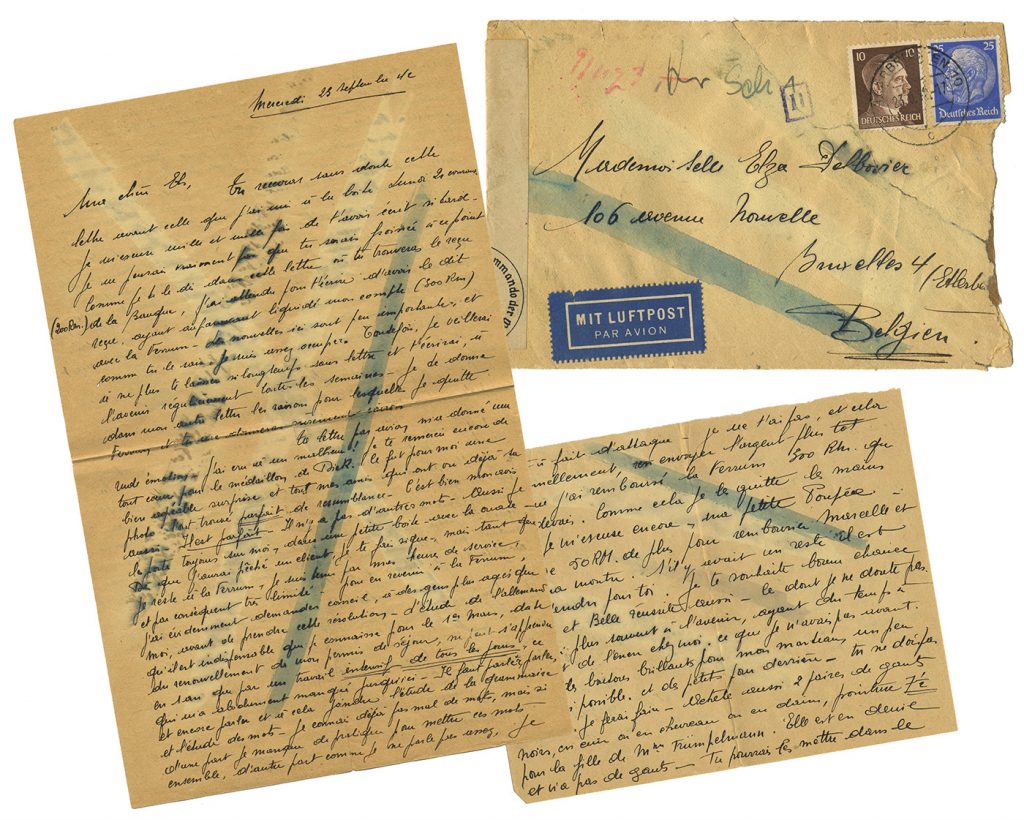 Mercredi 23 septembre 42
Ma chère Els, Tu recevras sans doute cette
lettre avant celle que j'ai mis à la boîte Lundi
Je m'excuse mille et mille fois de t'avoir écrit si tard -
Je ne pensais vraiment pas que tu serais à ce point
Comme je te le dis dans cette lettre où tu trouveras le reçu
(300Rm.) de la Banque, j'ai attendu pour t'écrire d'avoir le dit
reçu, ayant auparavant liquidé mon compte (500 Rm)
avec la Ferrum - Les nouvelles ici sont peu importantes, et
comme tu le vois je suis assez occupé. Toutefois, je veillerai
à ne plus te laisser si longtemps sans lettre et t'écrirai, à
l'avenir régulièrement toutes les semaines - Je te donne
dans mon autre lettre les raisons pour lesquelles je quitte
Ferrum et
Ta lettre par avion m'a donné une
rude émotion - j'ai cru à un malheur! Je te remercie encore de
tout cœur pour le médaillon de Dick. Il fut pour moi une
bien agréable surprise et tous mes amis qui ont vu déjà ta
photo l'ont trouvé parfait de ressemblance - C'est bien mon avis
aussi. Il est parfait - Il n'y a pas d'autres mots - Aussi je
le porte toujours sur moi, dans une petite boîte avec la ouate -
Dès que j'aurai pêché un client, je te fais signe, mais tant que
je reste à la Ferrum, je suis tenu par mes heures de service,
et par conséquent très limité. Pour en revenir à la Ferrum,
j'ai évidemment demandé conseil, à des gens plus âgés que
moi, avant de prendre cette résolution - L'étude de l'allemand
qu'il est indispensable que je connaisse pour le 1er Mars, date
du renouvellement de mon permis de séjour, ne peut s'apprendre
en 1 an que par un travail intensif de tous les jours, ce
qui m'a absolument manqué jusqu'ici - Il faut parler, parler,
et encore parler et à cela joindre l'étude de la grammaire
et l'étude des mots - Je connais déjà pas mal de mots, mais si
d'une part je manque de pratique pour mettre ces mots
ensemble, d'autre part comme je ne parle pas assez, je
Mademoiselle Elza Delbovier
106 avenue Nouvelle
Bruxelles 4
Belgien
10
DEUTSCHES REICH
25
25
Deutsches Reich
MIT LUFTPOST
PAR AVION
fait d'attaque - Je ne t'ai pas, et cela
envoyer l'argent plus tôt
j'ai remboursé la Ferrum 500 Rm. que
devais. Comme cela je la quitte les mains
Je m'excuse encore, ma petite Poupée -
50 RM. de plus pour rembourser Marcelle et
montre. S'il y avait un reste il est
pour toi. Je te souhaite bonne chance
et Bella réussite aussi - dont je ne doute pas.
plus souvent à l'avenir, ayant du temps à
chez moi. ce que je n'avais pas avant.
brillants pour mon manteau, un peu
possible. et de petits pour derrière - Tu ne dois pas
je ferai faire - Achète aussi 2 paires de gants
noirs, en cuir ou en chevreau ou en daim, pointure 7½
pour la fille de Mme Trümpelmann. Elle est en deuil
et n'a pas de gants - Tu pourrais les mettre dans le